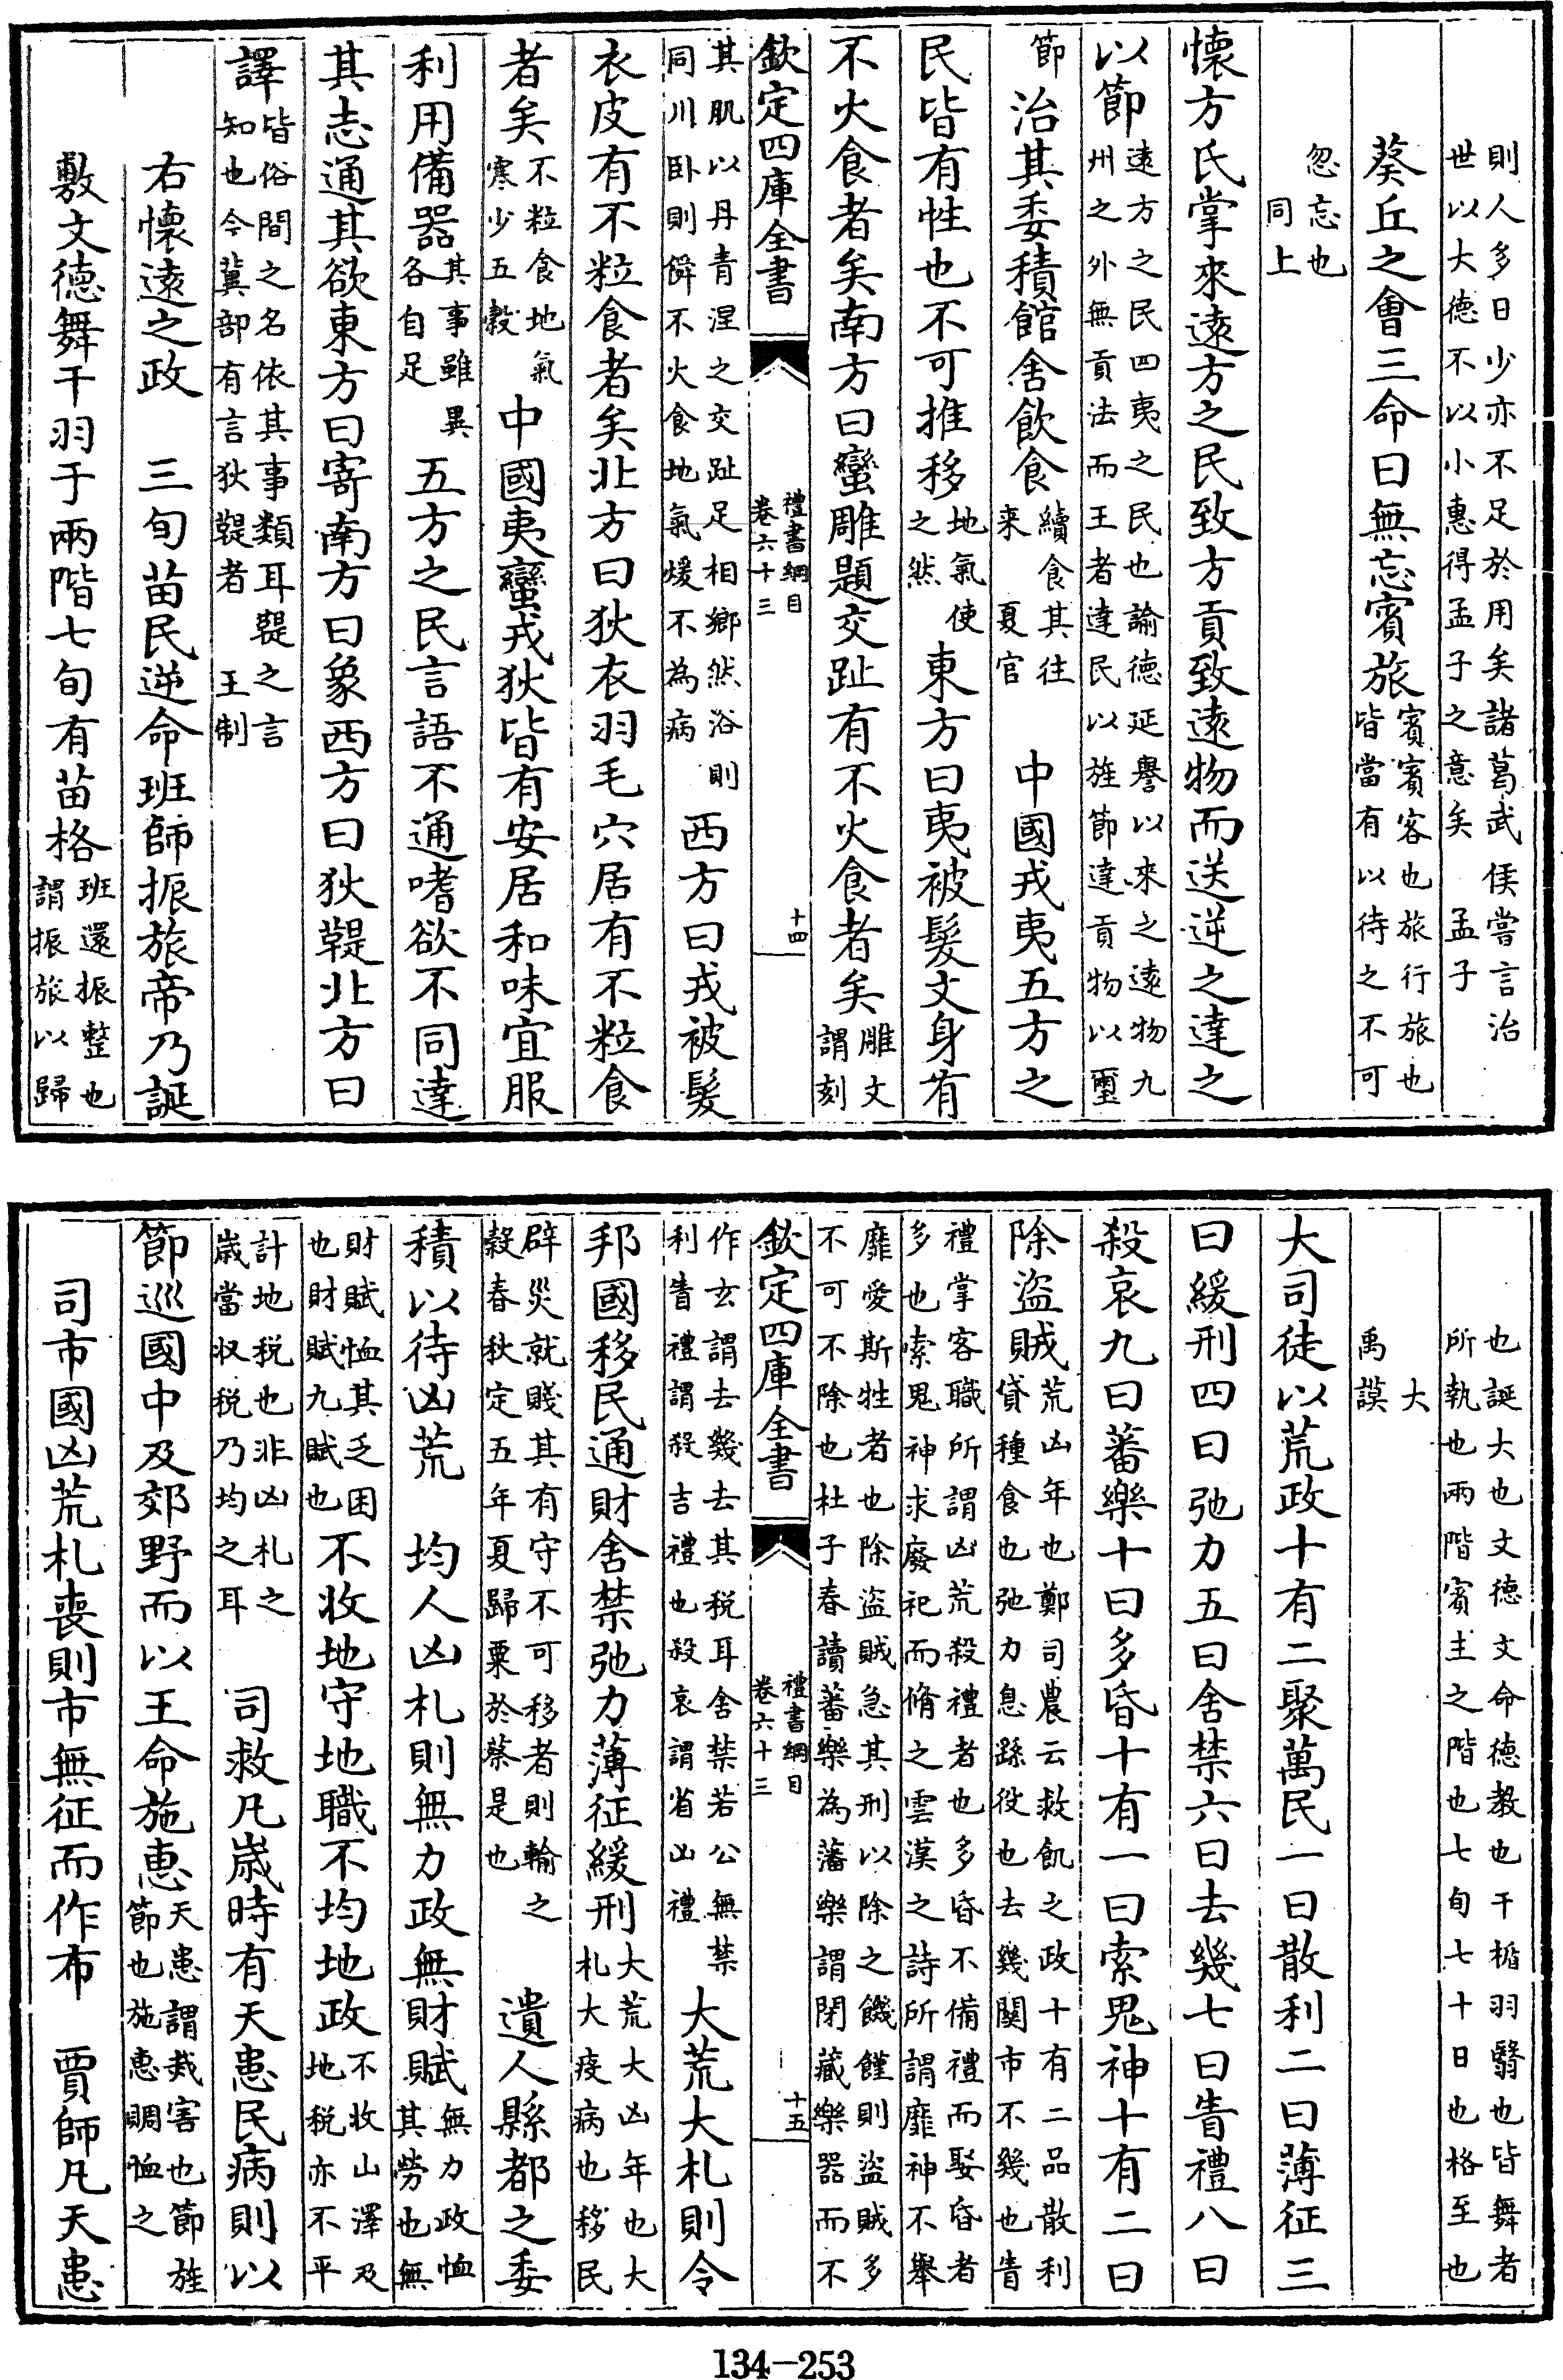 則人多日少亦不足於用矣諸葛武侯嘗言治
世以大德不以小惠得孟子之意矣　孟子
葵丘之會三命曰無忘賓旅賓賓客也旅行旅也
皆當有以待之不可
忽忘也
同上
懷方氏掌來遠方之民致方貢致遠物而送逆之達之
以節遠方之民四夷之民也諭德延譽以來之遠物九
州之外無貢法而王者達民以旌節達貢物以璽
節治其委積館舍飲食續食其往
来　夏官　中國戎夷五方之
民皆有性也不可推移地氣使
之然　東方曰夷被髮文身有
不火食者矣南方曰蠻雕題交趾有不火食者矣雕文
謂刻
欽定四庫全書　禮書綱目
卷六十三　十四
其肌以丹青涅之交趾足相鄉然浴則
同川卧則僢不火食地氣煖不為病　西方曰戎被髮
衣皮有不粒食者矣北方曰狄衣羽毛穴居有不粒食
者矣不粒食地氣
寒少五穀　中國夷蠻戎狄皆有安居和味宜服
利用備器其事雖異
各自足　五方之民言語不通嗜欲不同達
其志通其欲東方曰寄南方曰象西方曰狄鞮北方曰
譯皆俗間之名依其事類耳鞮之言
知也今冀部有言狄鞮者　王制
右懷遠之政　三旬苗民逆命班師振旅帝乃誕
敷文德舞干羽于兩階七旬有苗格班還振整也
謂振旅以歸
也誕大也文德文命德教也干楯羽翳也皆舞者
所執也兩階賓主之階也七旬七十日也格至也
大
禹謨
大司徒以荒政十有二聚萬民一曰散利二曰薄征三
曰緩刑四曰弛力五曰舍禁六曰去幾七曰眚禮八曰
殺哀九曰蕃樂十曰多昏十有一曰索鬼神十有二曰
除盜賊荒凶年也鄭司農云救飢之政十有二品散利
貸種食也弛力息繇役也去幾關市不幾也眚
禮掌客職所謂凶荒殺禮者也多昏不備禮而娶昏者
多也索鬼神求廢祀而脩之雲漢之詩所謂靡神不舉
靡愛斯牲者也除盜賊急其刑以除之饑饉則盜賊多
不可不除也杜子春讀蕃樂為藩樂謂閉藏樂器而不
欽定四庫全書　禮書綱目
卷六十三　十五
作玄謂去幾去其税耳舍禁若公無禁
利眚禮謂殺吉禮也殺哀謂省凶禮　大荒大札則令
邦國移民通財舍禁弛力薄征緩刑大荒大凶年也大
札大疫病也移民
辟災就賤其有守不可移者則輸之
穀春秋定五年夏歸粟於蔡是也　遺人縣都之委
積以待凶荒　均人凶札則無力政無財賦無力政恤
其勞也無
財賦恤其乏困
也財賦九賦也　不收地守地職不均地政不收山澤及
地税亦不平
計地税也非凶札之
歲當収税乃均之耳　司救凡歲時有天患民病則以
節巡國中及郊野而以王命施惠天患謂烖害也節旌
節也施惠賙恤之
司市國凶荒札喪則市無征而作布　賈師凡天患
134-253